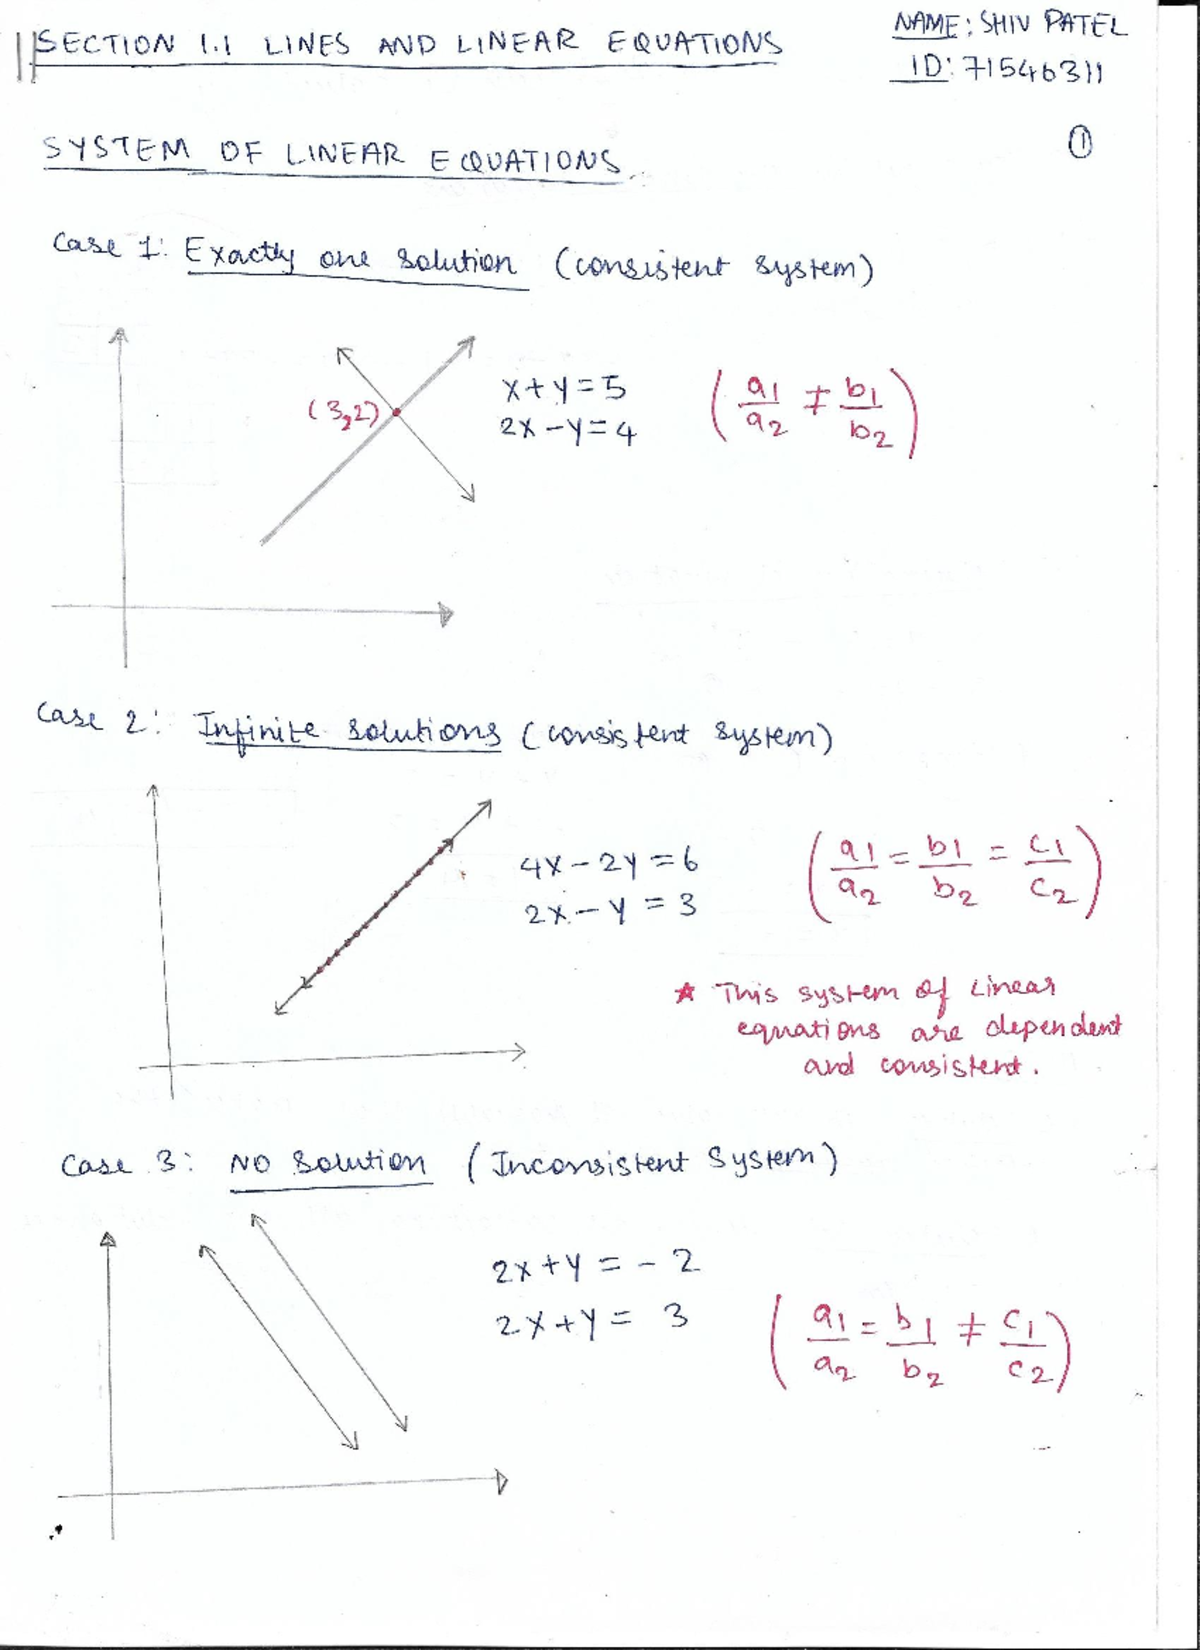 SECTION 1.1 LINES AND LINEAR EQUATIONS
NAME: SHIV PATEL
ID: 71546311
1
SYSTEM OF LINEAR EQUATIONS.
Case 1: Exactly one solution (consistent system)
(3,2)
x+y=5
2x-y=4
(a1/a2 ≠ b1/b2)
Case 2: Infinite solutions (consistent system)
4x-2y=6
2x-y=3
(a1/a2 = b1/b2 = c1/c2)
★ This system of Linear
equations are dependent
and consistent.
Case 3: NO Solution (Inconsistent System)
2x+y=-2
2x+y=3
(a1/a2 = b1/b2 ≠ c1/c2)